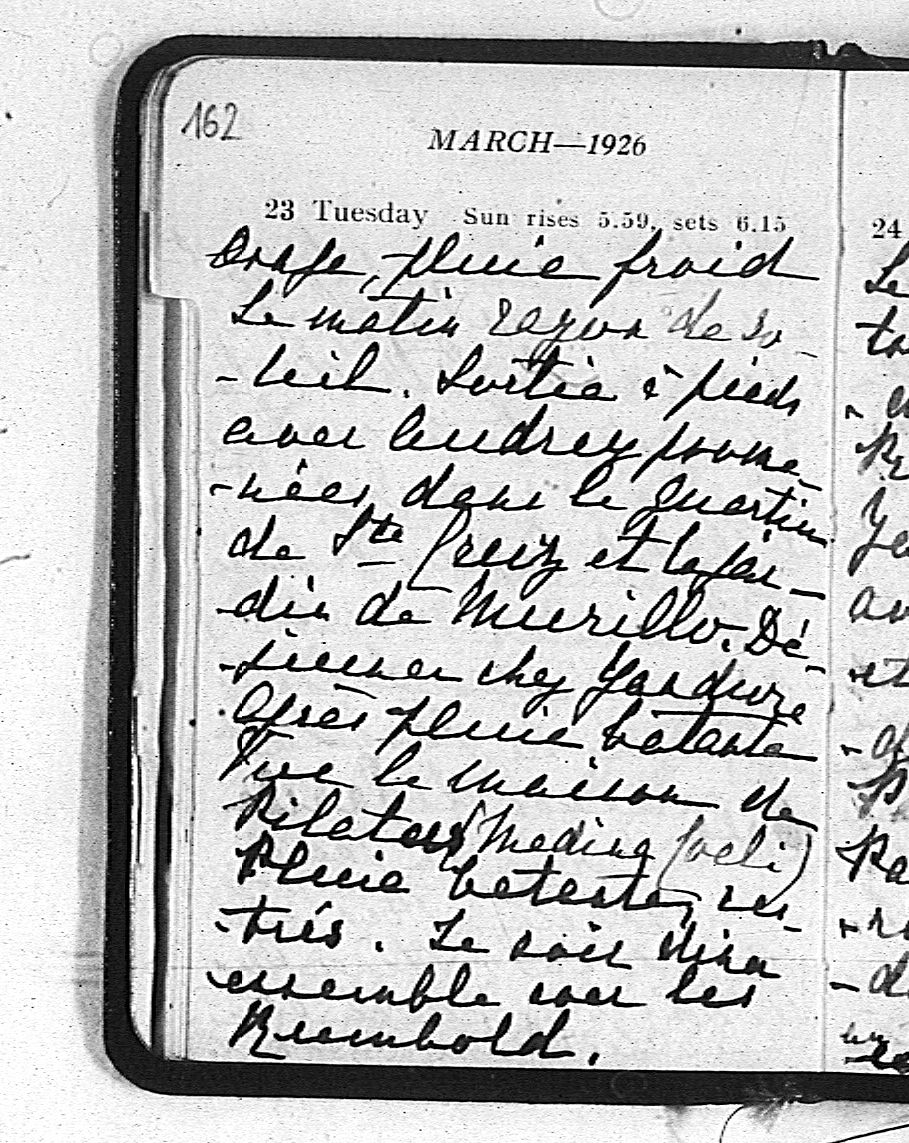 162
MARCH—1926
23 Tuesday Sun rises 5.59, sets 6.15
Orage, pluie froid
Le matin rayon de so-
-leil. Sortie à pieds
avec Audrey prome-
-nées dans le quartier
de Ste Cruz et le jar-
-din de Murillo. Dé-
-jeuner chez
après pluie batante
Vue la maison de
Pilatus (Medina Coeli)
Pluie batante, ren-
-trés. Le soir diner
ensemble avec les
Rumbold.
24
Le